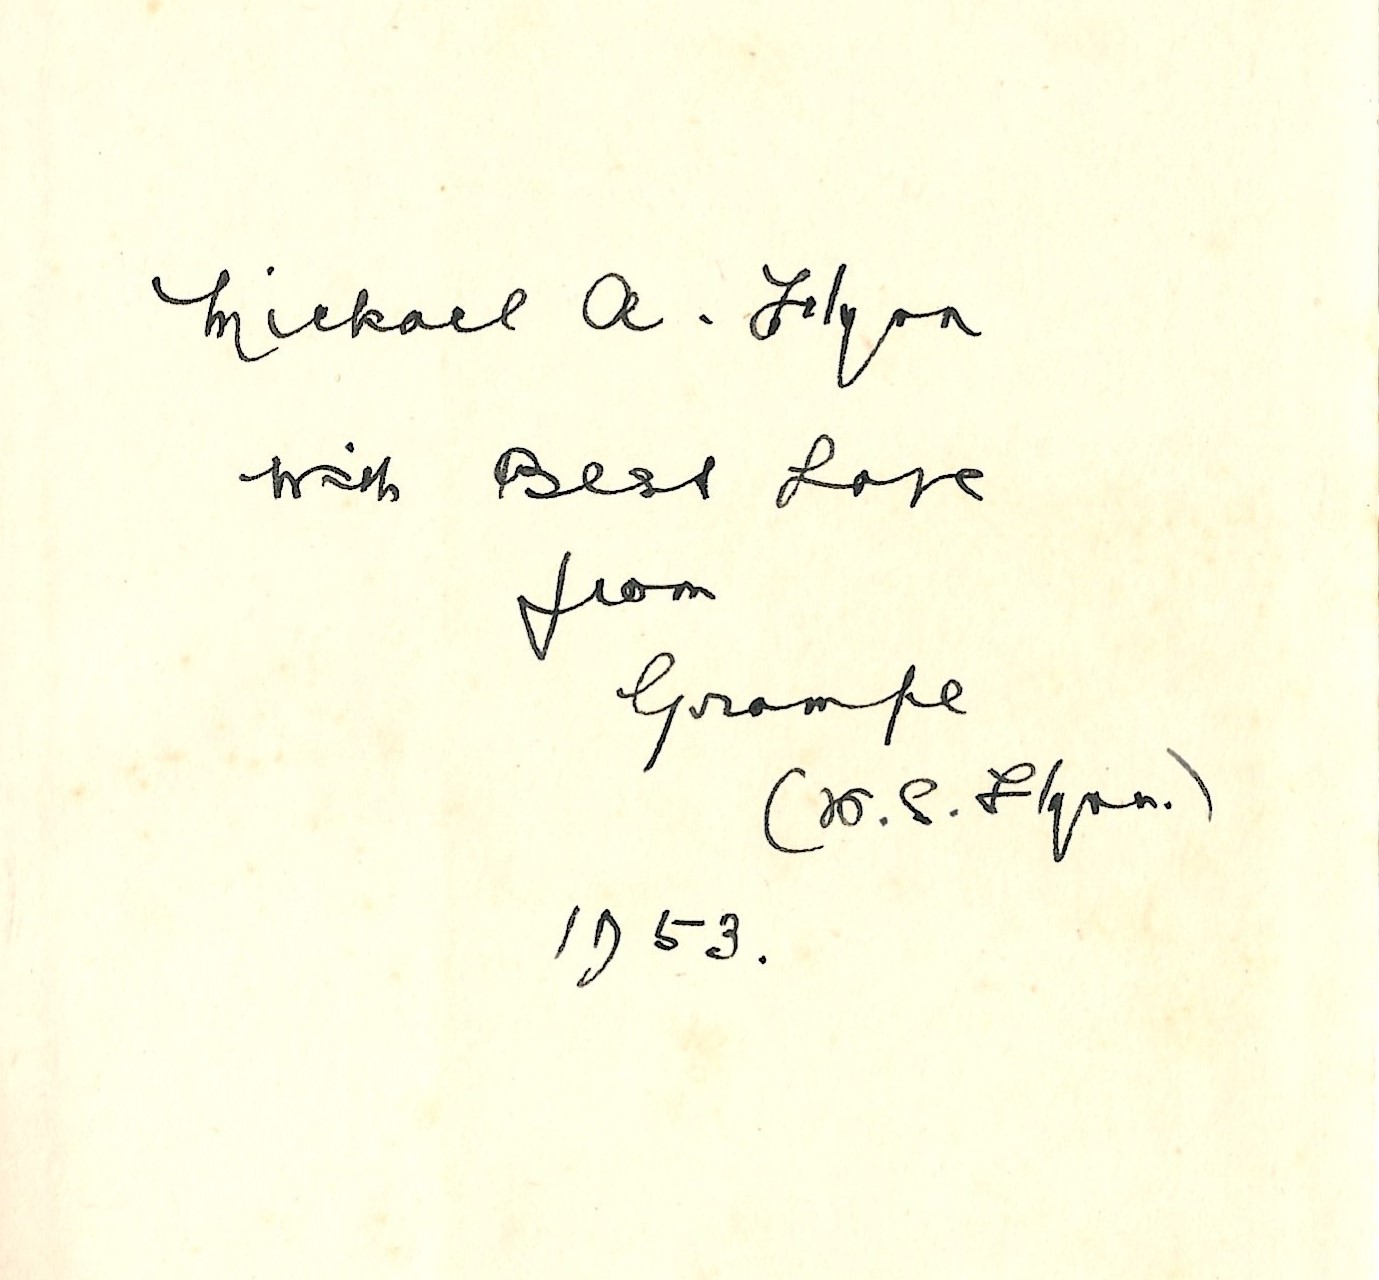 Michael A. Flynn
with Best Love
from
Grampe
(W. S. Flynn.)
1953.